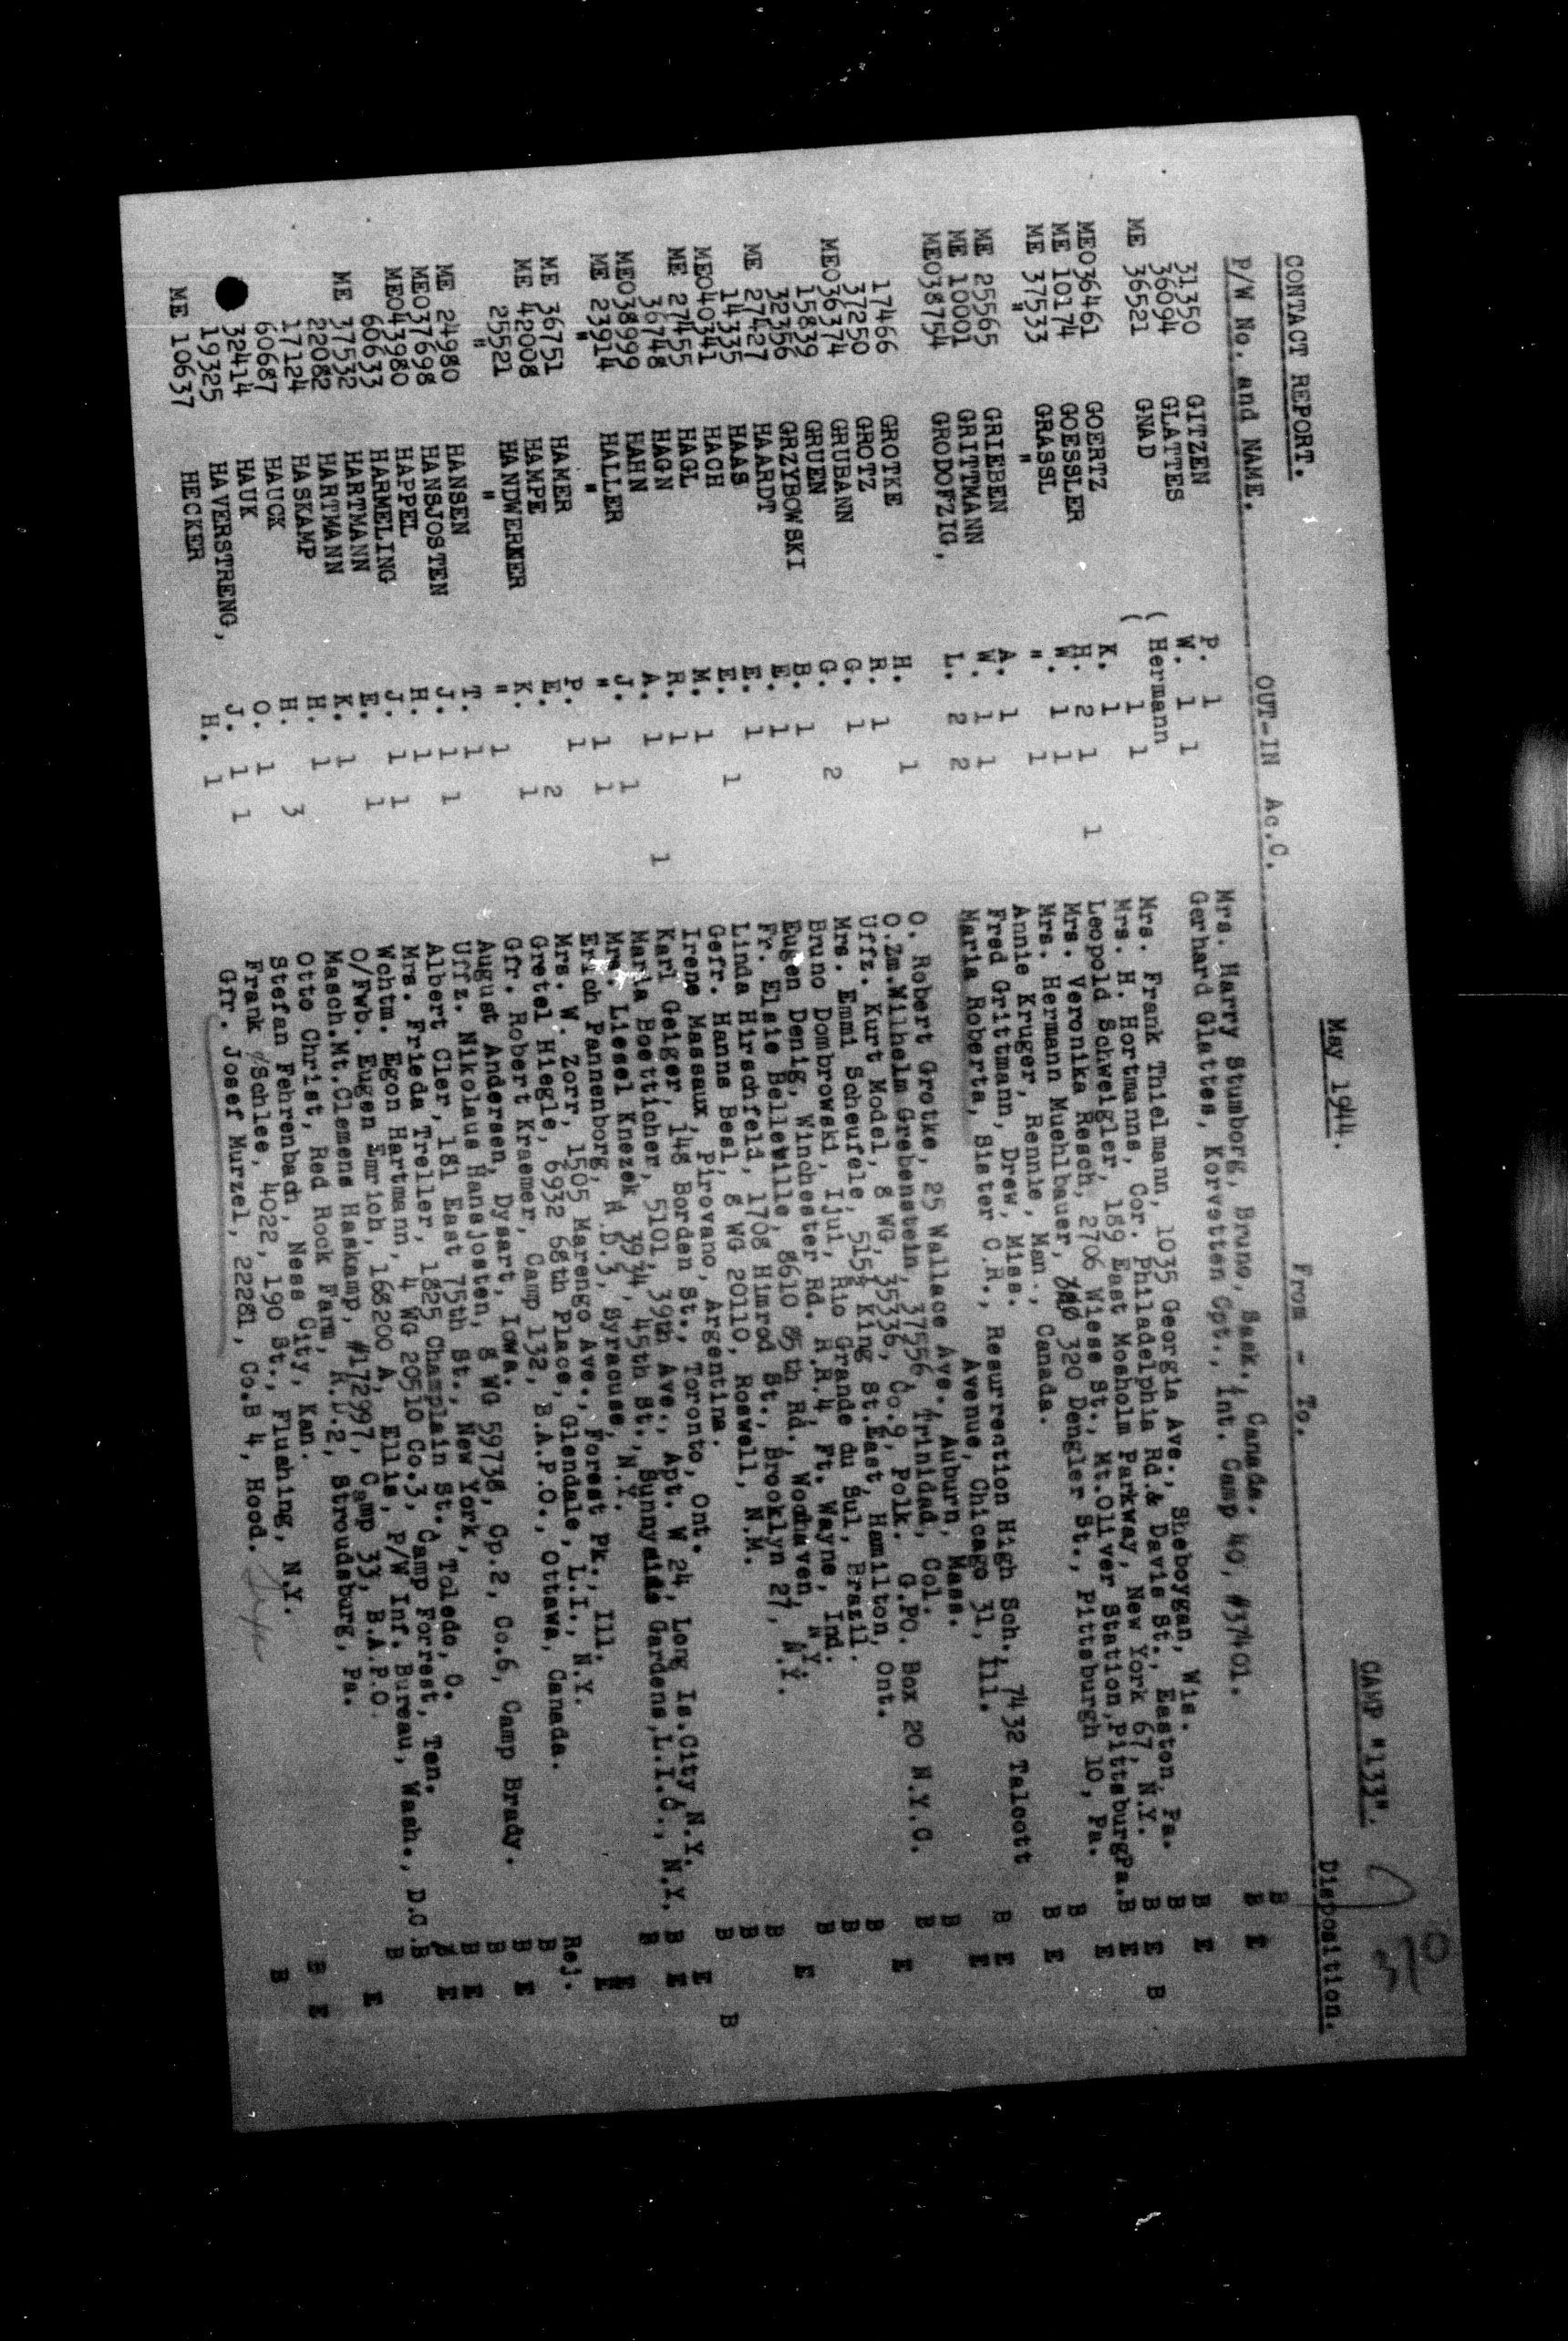 CAMP "133". 370
CONTACT REPORT. May 1944.
P/W No. and NAME. OUT-IN Ac.C. From - To. Disposition.
31350 GITZEN P. 1 Mrs. Harry Stumborg, Bruno, Sask., Canada. B
36094 GLATTES W. 1 1 Gerhard Glattes, Korvetten Cpt., Int. Camp 40, #37401. B E
ME 36521 GNAD ( Hermann
( 1 1 Mrs. Frank Thielmann, 1035 Georgia Ave., Sheboygan, Wis. B E
MEO36461 GOERTZ K. 1 Mrs. H. Hortmanns, Cor. Philadelphia Rd.& Davis St., Easton, Pa. B
ME 10174 GOESSLER H. 2 1 1 Leopold Schweigler, 189 East Mosholm Parkway, New York 67, N.Y. B E B
ME 37533 GRASSL W. 1 1 Mrs. Veronika Resch, 2706 Wiese St., Mt.Oliver Station,PittsburgPa. B E
" " " 1 Mrs. Hermann Muehlbauer, 320 Dengler St., Pittsburgh 10, Pa. E
ME 25565 GRIEBEN A. 1 Annie Kruger, Rennie, Man., Canada. B
ME 10001 GRITTMANN W. 1 1 Fred Grittmann, Drew, Miss. B E
MEO38754 GRODOFZIG, L. 2 2 Maria Roberta, Sister C.R., Resurrection High Sch., 7432 Talcott B E
Avenue, Chicago 31, Ill. E
17466 GROTKE H. 1 O. Robert Grotke, 25 Wallace Ave., Auburn, Mass. B
37250 GROTZ R. 1 O.Zm.Wilhelm Grebenstein, 37556, Trinidad, Col. B
MEO36374 GRUBANN G. 1 Uffz. Kurt Model, 8 WG, 35336, Co.9, Polk. G.PO. Box 20 N.Y.C. E
15839 GRUEN G. 2 Mrs. Emmi Scheufele, 515½ King St.East, Hamilton, Ont. B
32356 GRZYBOWSKI B. 1 Bruno Dombrowski, Ijui, Rio Grande du Sul, Brazil. B
ME 27427 HAARDT E. 1 Eugen Denig, Winchester Rd. R.R.4, Ft. Wayne, Ind. B
14335 HAAS E. 1 Fr. Elsie Belleville, 8610 85th Rd., Woodhaven, N.Y. E
MEO40341 HACH E. 1 Linda Hirschfeld, 1708 Himrod St., Brooklyn 27, N.Y. B
ME 27455 HAGL M. 1 Gefr. Hanns Besl, 8 WG 20110, Roswell, N.M. B
36748 HAGN R. 1 Irene Massaux, Pirovano, Argentina. B
MEO38999 HAHN A. 1 1 Karl Geiger, 148 Borden St., Toronto, Ont. E B
ME 23914 HALLER J. 1 Maria Boetticher, 5101, 39th Ave., Apt. W 24, Long Is.City, N.Y. B E
" " " 1 1 Mrs. Liesel Knezek 3934, 45th St., Sunnyside Gardens,L.I.C., N.Y. B
ME 36751 HAMER P. 1 Erich Pannenborg, R.D.3, Syracuse, N.Y. E
ME 42008 HAMPE E. 2 Mrs. W. Zorr, 1505 Marengo Ave., Forest Pk., Ill. E
25521 HANDWERKER K. 1 Gretel Hiegle, 6932 68th Place, Glendale, L.I., N.Y. Rej.
" " " 1 Gfr. Robert Kraemer, Camp 132, B.A.P.O., Ottawa, Canada. B
ME 24980 HANSEN T. 1 August Andersen, Dysart, Iowa. B E
MEO37698 HANSJOSTEN J. 1 1 Uffz. Nikolaus Hansjosten, 8 WG 59738, Cp.2, Co.6, Camp Brady. B
MEO43980 HAPPEL H. 1 Albert Cler, 181 East 75th St., New York, B E
60633 HARMELING J. 1 1 Mrs. Frieda Treller, 1825 Champlain St., Toledo, O. B E
ME 37532 HARTMANN E. 1 Wchtm. Egon Hartmann, 4 WG 20510 Co.3, Camp Forrest, Ten. B
22082 HARTMANN K. 1 O/Fwb. Eugen Emrich, 168200 A, Ellis, P/W Inf. Bureau, Wash., D.C. B
17124 HASKAMP H. 1 Masch.Mt.Clemens Haskamp, #172997, Camp 33, B.A.P.O. E
60687 HAUCK H. 3 Otto Christ, Red Rock Farm, R.D.2, Stroudsburg, Pa.
32414 HAUK O. 1 Stefan Fehrenbach, Ness City, Kan. B
19325 HAVERSTRENG, J. 1 1 Frank Schlee, 4022, 190 St., Flushing, N.Y. B E
ME 10637 HECKER H. 1 Gfr. Josef Murzel, 22281, Co.B 4, Hood. B